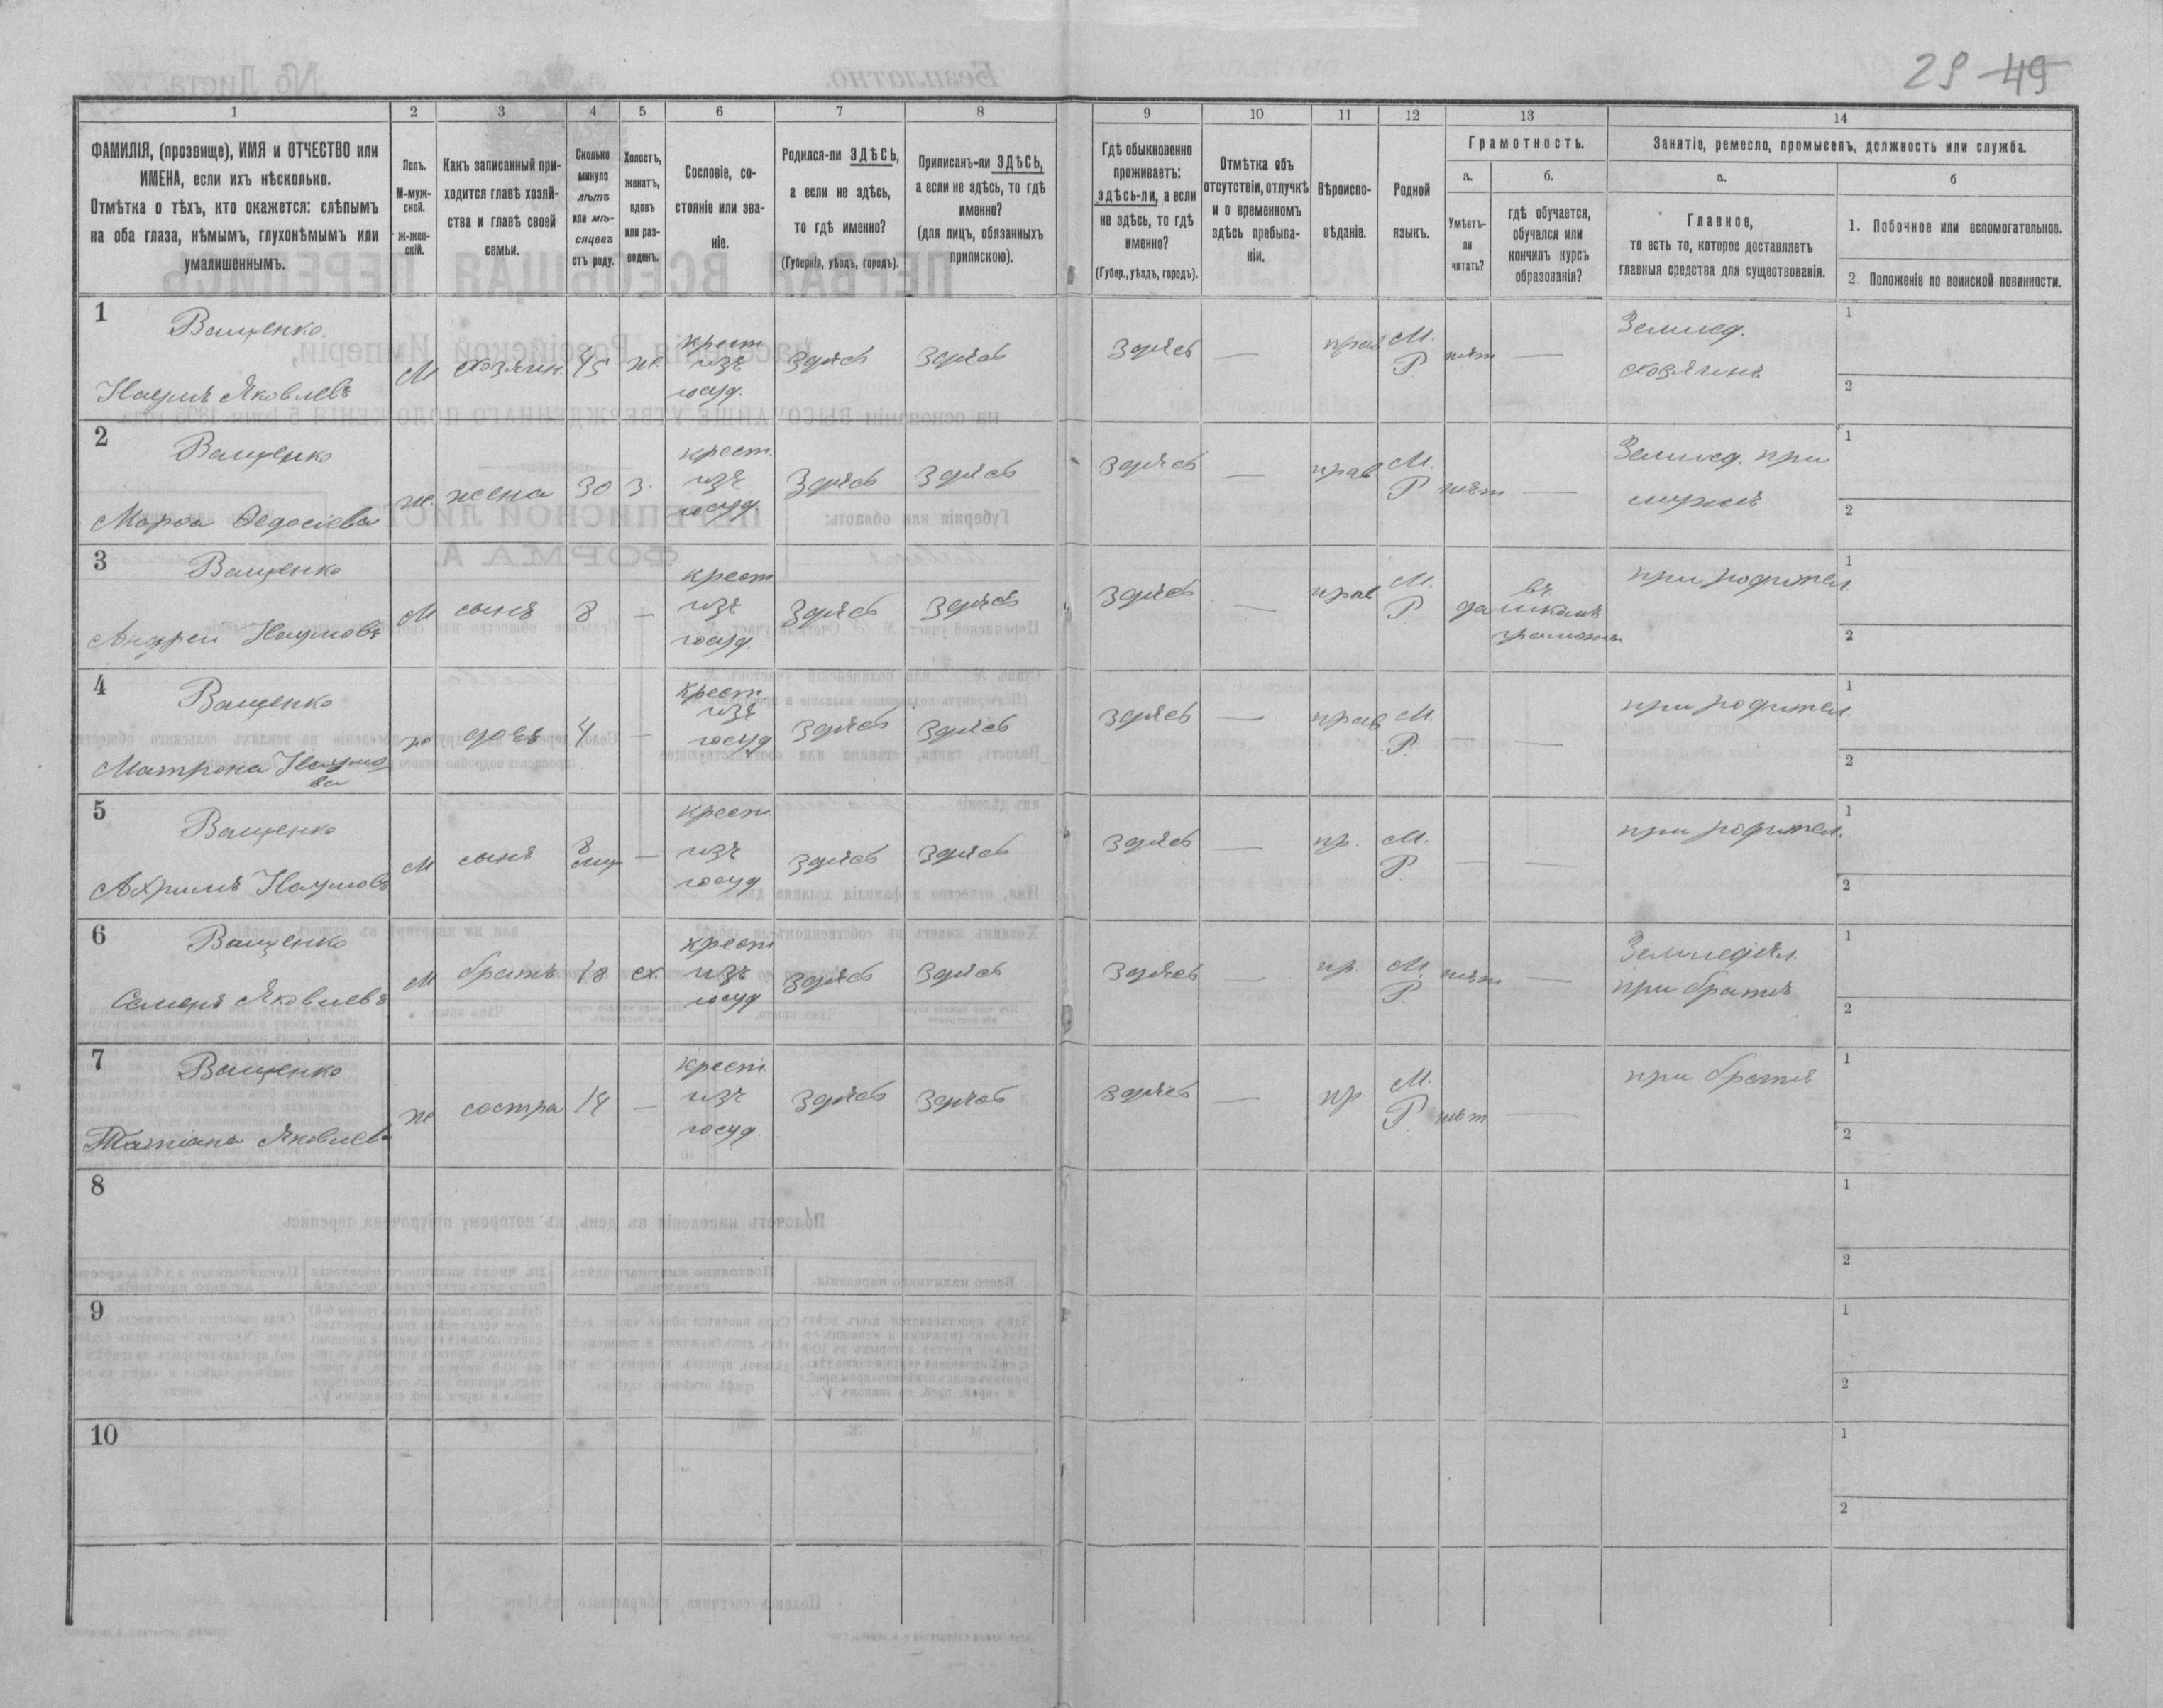 29 49
1 2 3 4 5 6 7 8 9 10 11 12 13 14
ФАМИЛІЯ, (прозвище), ИМЯ и ОТЧЕСТВО или
ИМЕНА, если ихъ нѣсколько.
Отмѣтка о тѣхъ, кто окажется: слѣпымъ
на оба глаза, нѣмымъ, глухонѣмымъ или
умалишеннымъ.
Полъ.
М-муж-
ской.
Ж-жен-
скій.
Какъ записанный при-
ходится главѣ хозяй-
ства и главѣ своей
семьи.
Сколько
минуло
лѣтъ
или мѣ-
сяцевъ
отъ роду.
Холостъ,
женатъ,
вдовъ
или раз-
веденъ.
Сословіе, со-
стояніе или зва-
ніе.
Родился-ли ЗДѢСЬ,
а если не здѣсь,
то гдѣ именно?
(Губернія, уѣздъ, городъ).
Приписанъ-ли ЗДѢСЬ,
а если не здѣсь, то гдѣ
именно?
(для лицъ, обязанныхъ
припискою).
Гдѣ обыкновенно
проживаетъ:
здѣсь-ли, а если
не здѣсь, то гдѣ
именно?
(Губер., уѣздъ, городъ).
Отмѣтка объ
отсутствіи, отлучкѣ
и о временномъ
здѣсь пребыва-
ніи.
Вѣроиспо-
вѣданіе.
Родной
языкъ.
Грамотность.
а.
Умѣетъ-
ли
читать?
б.
гдѣ обучается,
обучался или
кончилъ курсъ
образованія?
Занятіе, ремесло, промыселъ, должность или служба.
а.
Главное,
то есть то, которое доставляетъ
главныя средства для существованія.
б
1. Побочное или вспомогательное.
2. Положеніе по воинской повинности.
1
Ващенко
Наумъ Яковлевъ
М хозяин. 45 ж.
крест
изъ
госуд.
здѣсь здѣсь здѣсь — прав М.
Р нѣт —
Землед.
хозяинъ
1
2
2
Ващенко
Марфа Федосіева
ж. жена 30 з.
крест.
изъ
госуд.
Здѣсь здѣсь здѣсь — прав М.
Р нѣт —
Землед. при
мужѣ
1
2
3
Ващенко
Андрей Наумовъ
М сынъ 8 —
крест
изъ
госуд.
Здѣсь здѣсь здѣсь — прав М.
Р да
въ
школѣ
грамоты
при родител.
1
2
4
Ващенко
Матрона Наумо
ва
ж дочь 4 —
крест.
изъ
госуд
здѣсь здѣсь здѣсь — прав М.
Р. — —
при родител.
1
2
5
Ващенко
Ахримъ Наумовъ
М сынъ 8
мц —
крест.
изъ
госуд
здѣсь здѣсь здѣсь — пр. М.
Р. — —
при родител.
1
2
6
Ващенко
Семенъ Яковлевъ
М братъ 18 х.
крест
изъ
госуд
здѣсь здѣсь здѣсь — пр. М.
Р нѣт —
Земледѣл.
при братѣ
1
2
7
Ващенко
Татіана Яковлева
ж сестра 14 —
крест.
изъ
госуд.
здѣсь здѣсь здѣсь — пр. М.
Р. нѣт —
при братѣ
1
2
8
1
2
9
1
2
10
1
2